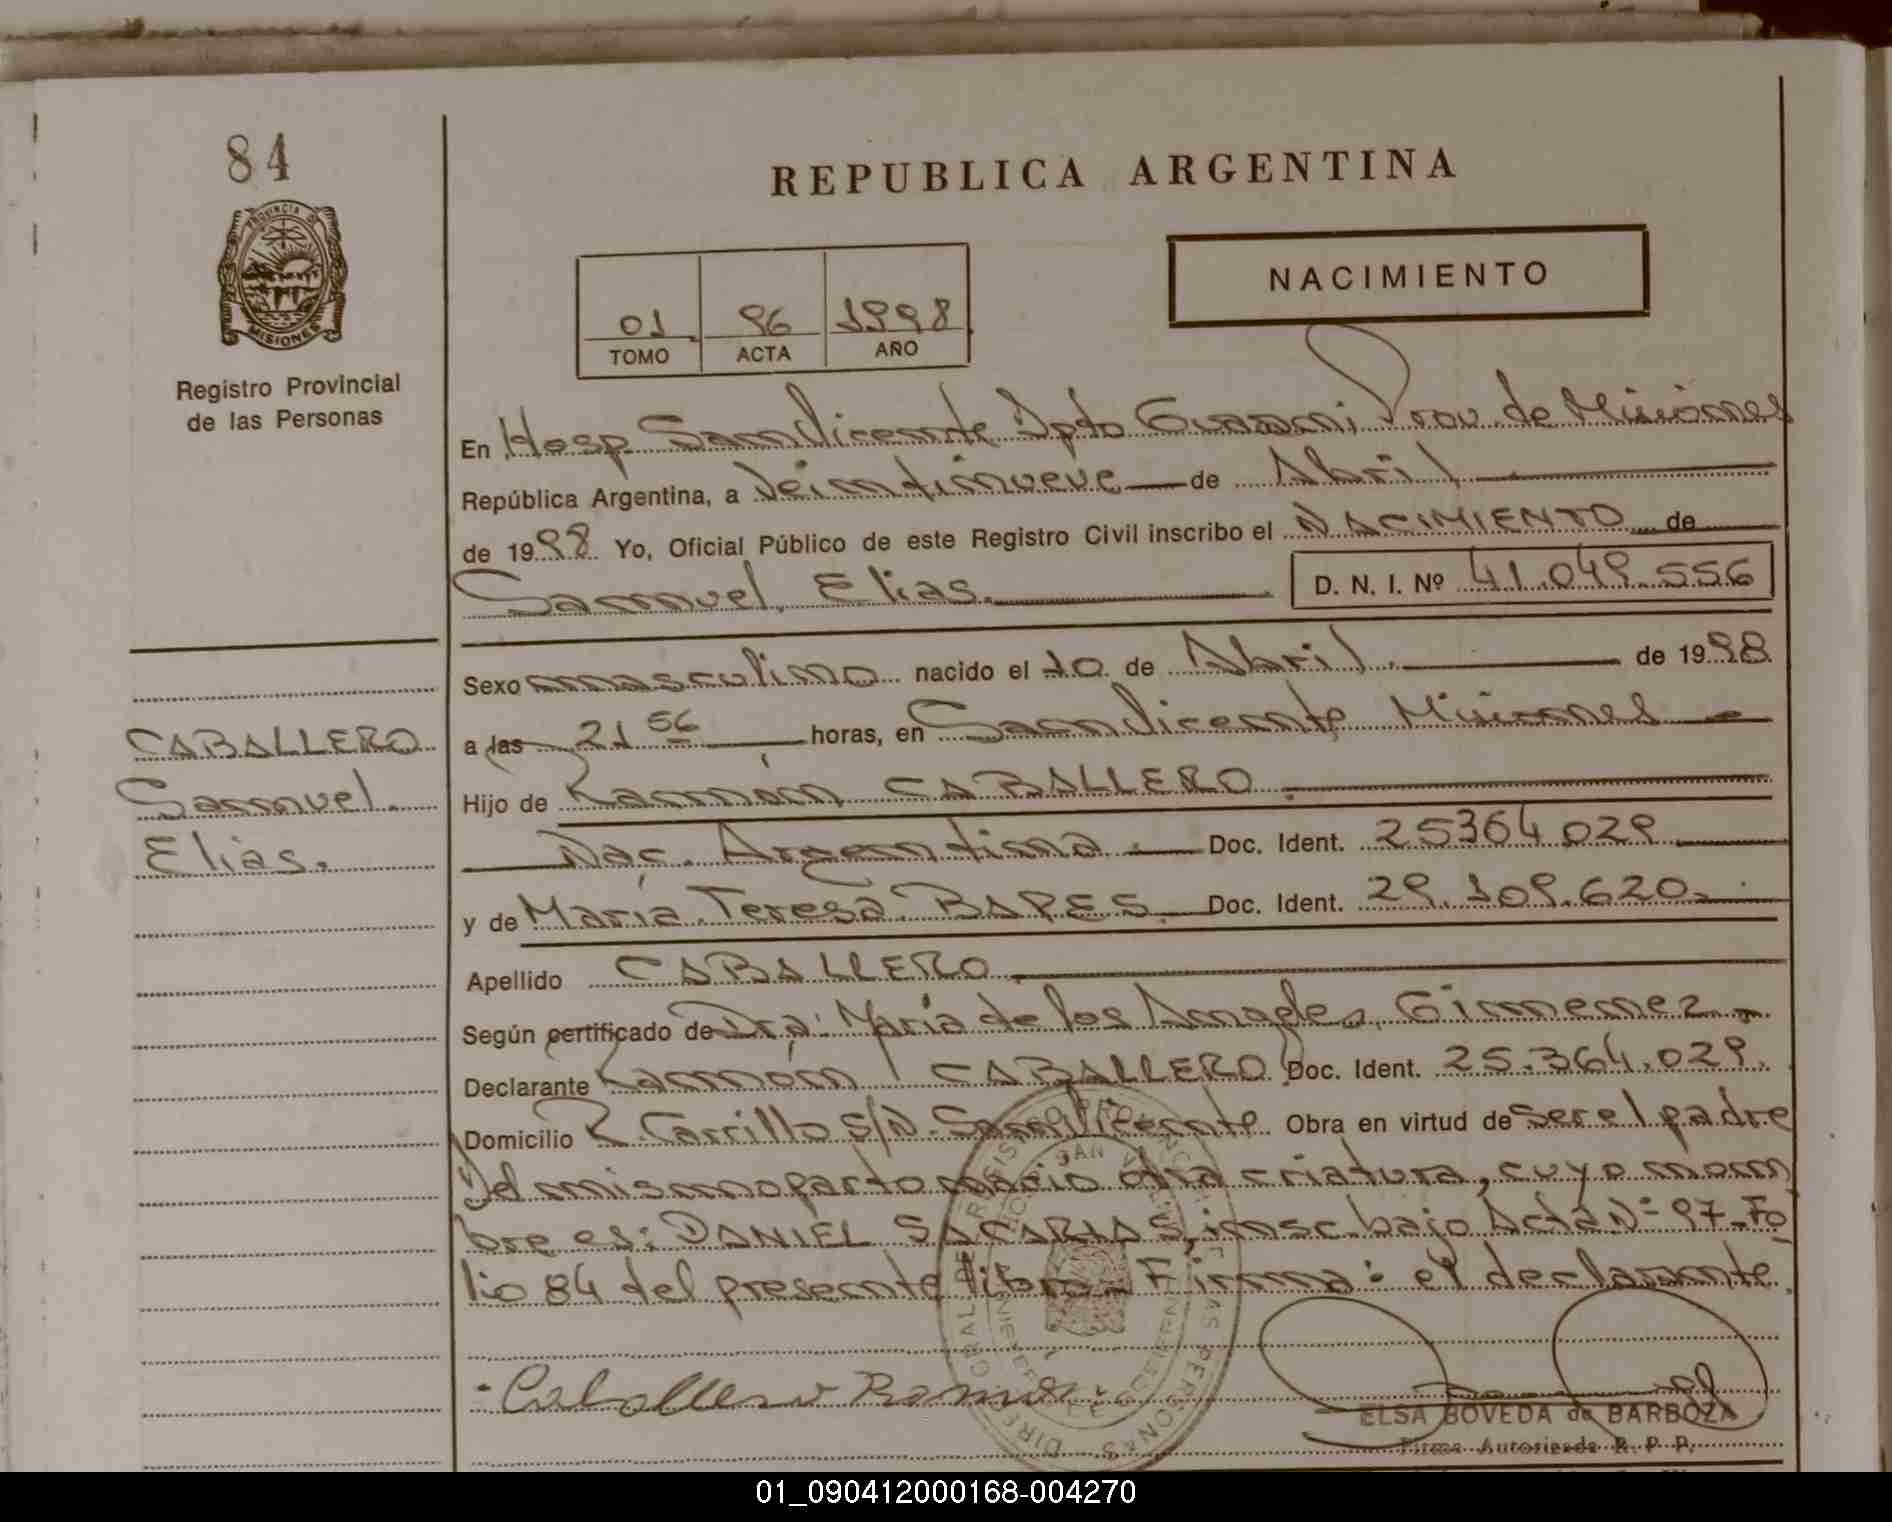 84
PROVINCIA DE
MISIONES
Registro Provincial
de las Personas
REPUBLICA ARGENTINA
NACIMIENTO
01 96 1998
TOMO ACTA AÑO
En Hosp. San Vicente Dpto Guarani Prov. de Misiones
República Argentina, a Veintinueve de Abril
de 1998 Yo, Oficial Público de este Registro Civil inscribo el NACIMIENTO de
Samuel Elias. D. N. I. Nº 41.049.556
Sexo masculino nacido el 10 de Abril de 1998
a las 21 56 horas, en San Vicente Misiones
CABALLERO
Samuel
Elias.
Hijo de Ramón CABALLERO
Nac. Argentina Doc. Ident. 25364.029
y de María Teresa BAPES Doc. Ident. 29.109.620
Apellido CABALLERO
Según certificado de Dra: María de los Angeles Gimenez
Declarante Ramón CABALLERO Doc. Ident. 25.364.029.
Domicilio R. Carrillo S/N. San Vicente Obra en virtud de ser el padre
Del mismo parto nacio otra criatura, cuyo nom
bre es: DANIEL SACARIAS, insc. bajo Acta Nº 97-Fo
lio 84 del presente libro - Firma: el declarante.
Caballero Ramon
ELSA BOVEDA de BARBOZA
Firma Autorizada R. P. P.
01_090412000168-004270